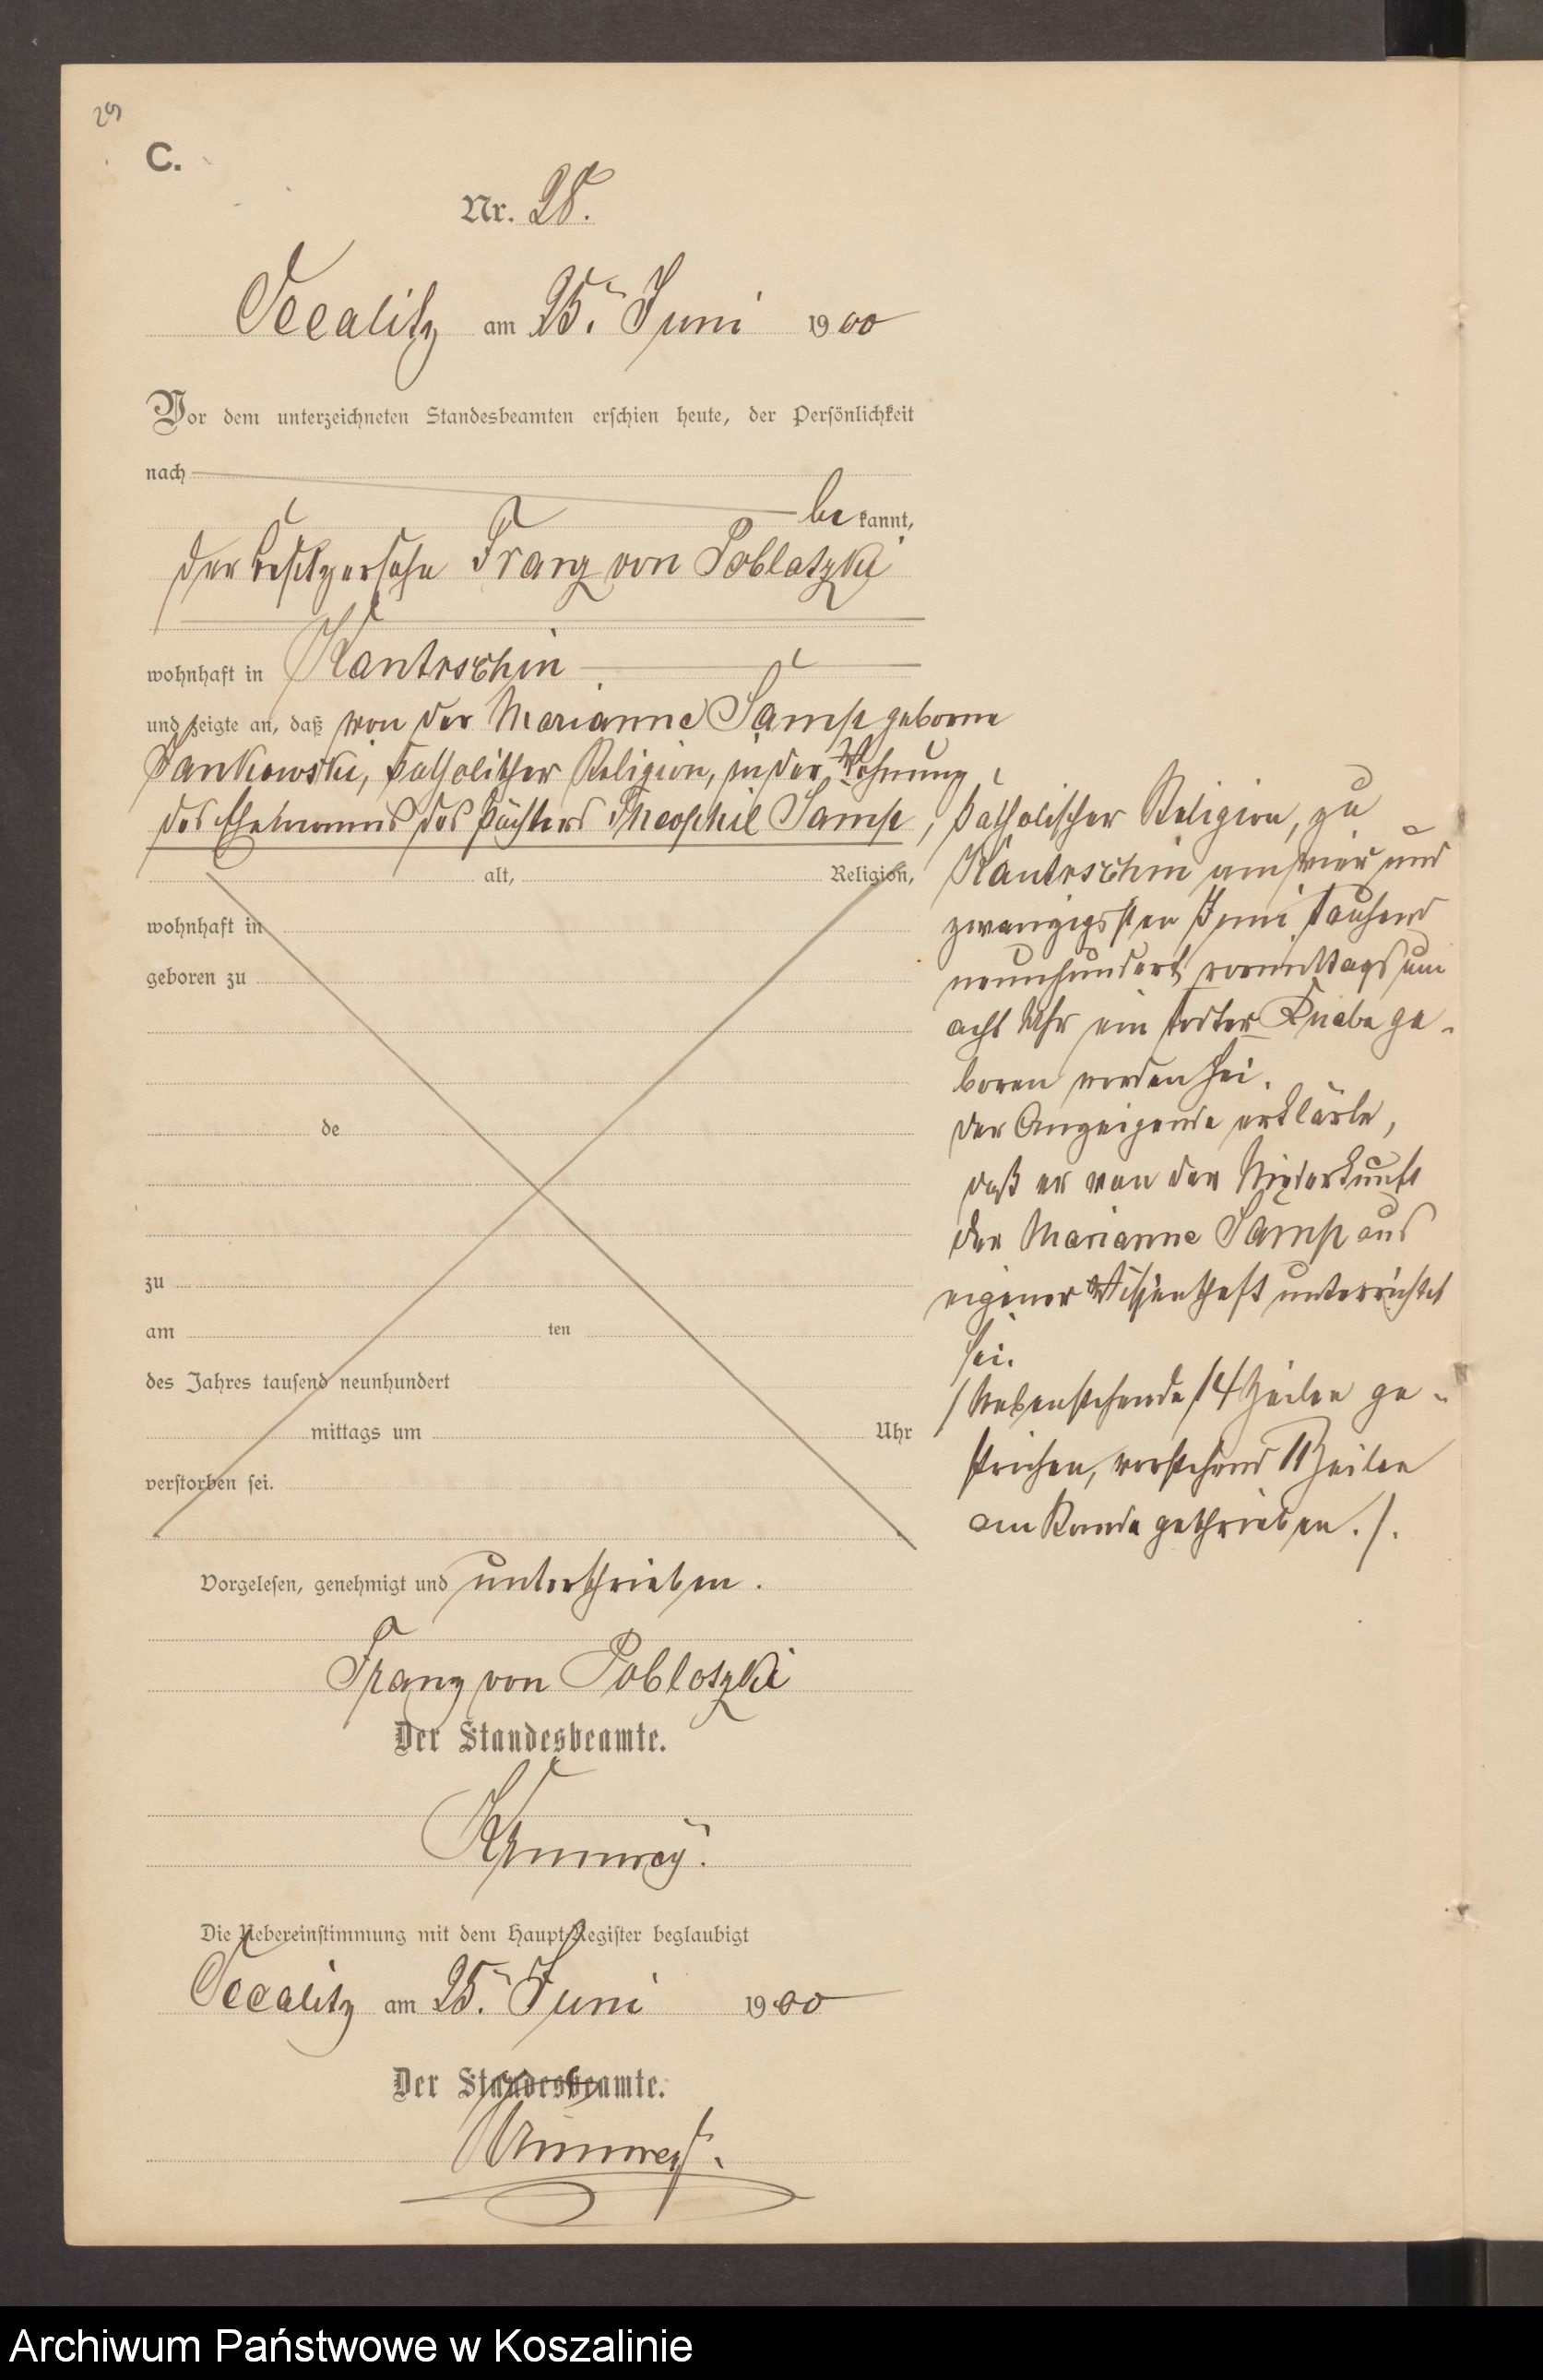 29
C.
Nr. 28.
Occalitz am 25. Juni 1900
Vor dem unterzeichneten Standesbeamten erschien heute, der Persönlichkeit
nach
bekannt,
der Besitzersohn Franz von Poblotzki
wohnhaft in Kantrschin
und zeigte an, daß von der Marianna Samp geborne
Jankowski, katholischer Religion, in der Wohnung
des Ehemanns des Pächters Theophil Samp,
alt, Religion,
wohnhaft in
geboren zu
de
zu
am ten
des Jahres tausend neunhundert
mittags um Uhr
verstorben sei.
katholischer Religion, zu
Kantrschin am vier und
zwanzigsten Juni tausend
neunhundert vormittags um
acht Uhr ein todter Knabe ge-
boren worden sei.
Der Anzeigende erklärte,
daß er von der Niederkunft
der Marianna Samp aus
eigener Wissenschaft unterrichtet
sei.
/Nebenstehende 14 Zeilen ge-
strichen, vorstehend 11 Zeilen
am Rande geschrieben./.
Vorgelesen, genehmigt und unterschrieben.
Franz von Poblotzki
Der Standesbeamte.
Die Uebereinstimmung mit dem Haupt-Register beglaubigt
Occalitz am 25. Juni 1900
Der Standesbeamte.
Archiwum Państwowe w Koszalinie